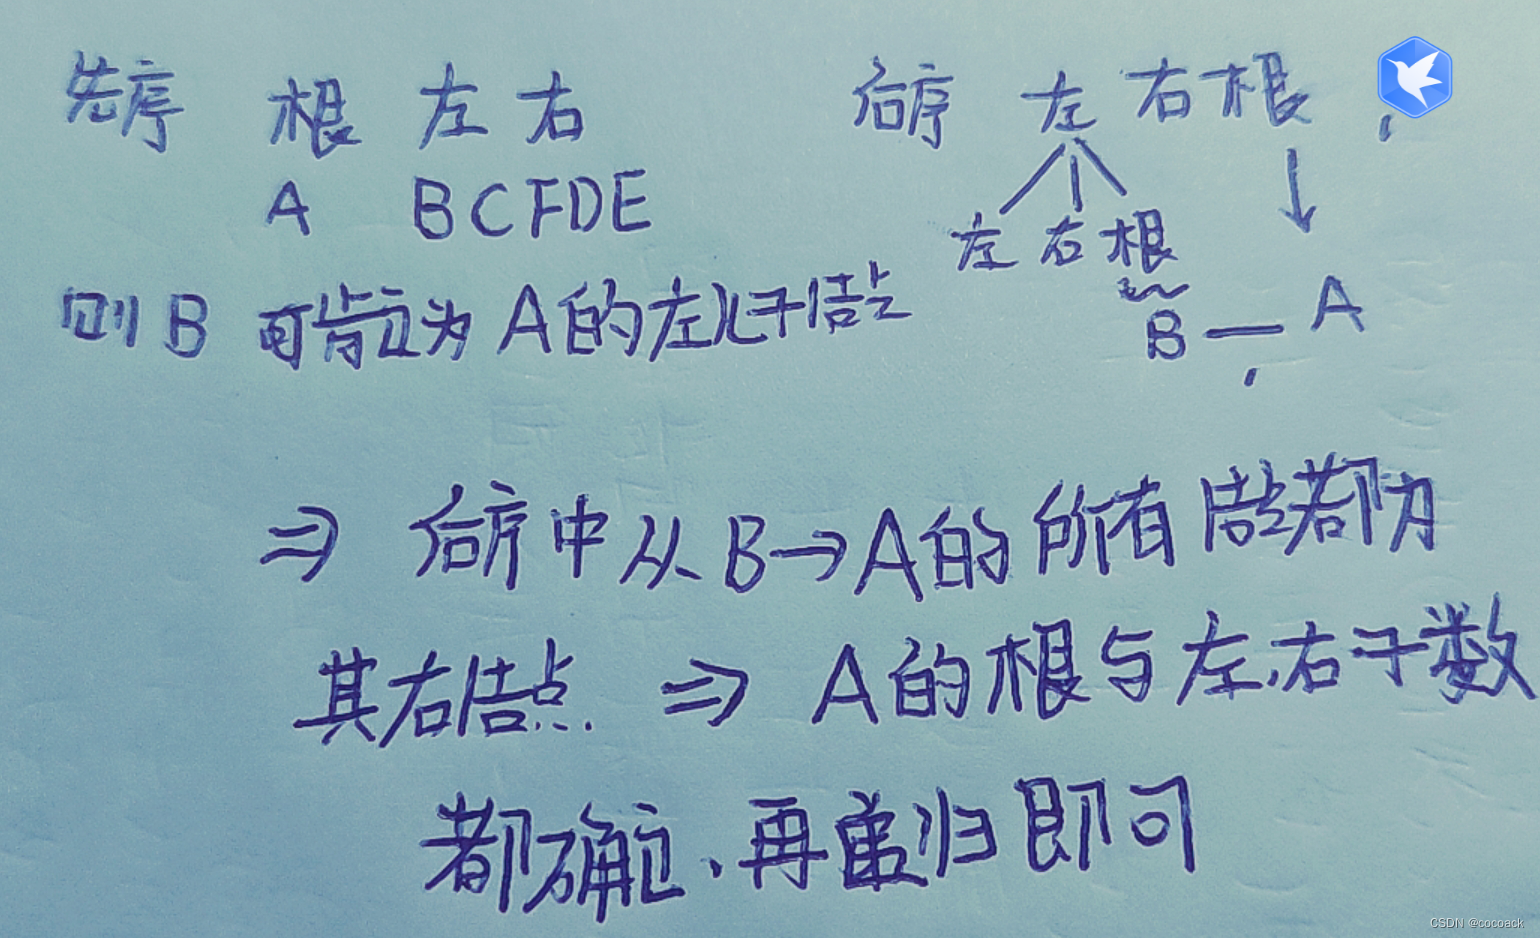 先序 根 左 右 后序 左 右 根
A BCFDE
左 右 根
则 B 可肯定为 A 的左儿子结点 B — A
⇒ 后序中从 B→A 的所有结点都为
其右结点. ⇒ A 的根与左、右子数
都确定、再递归即可
CSDN @cocoack